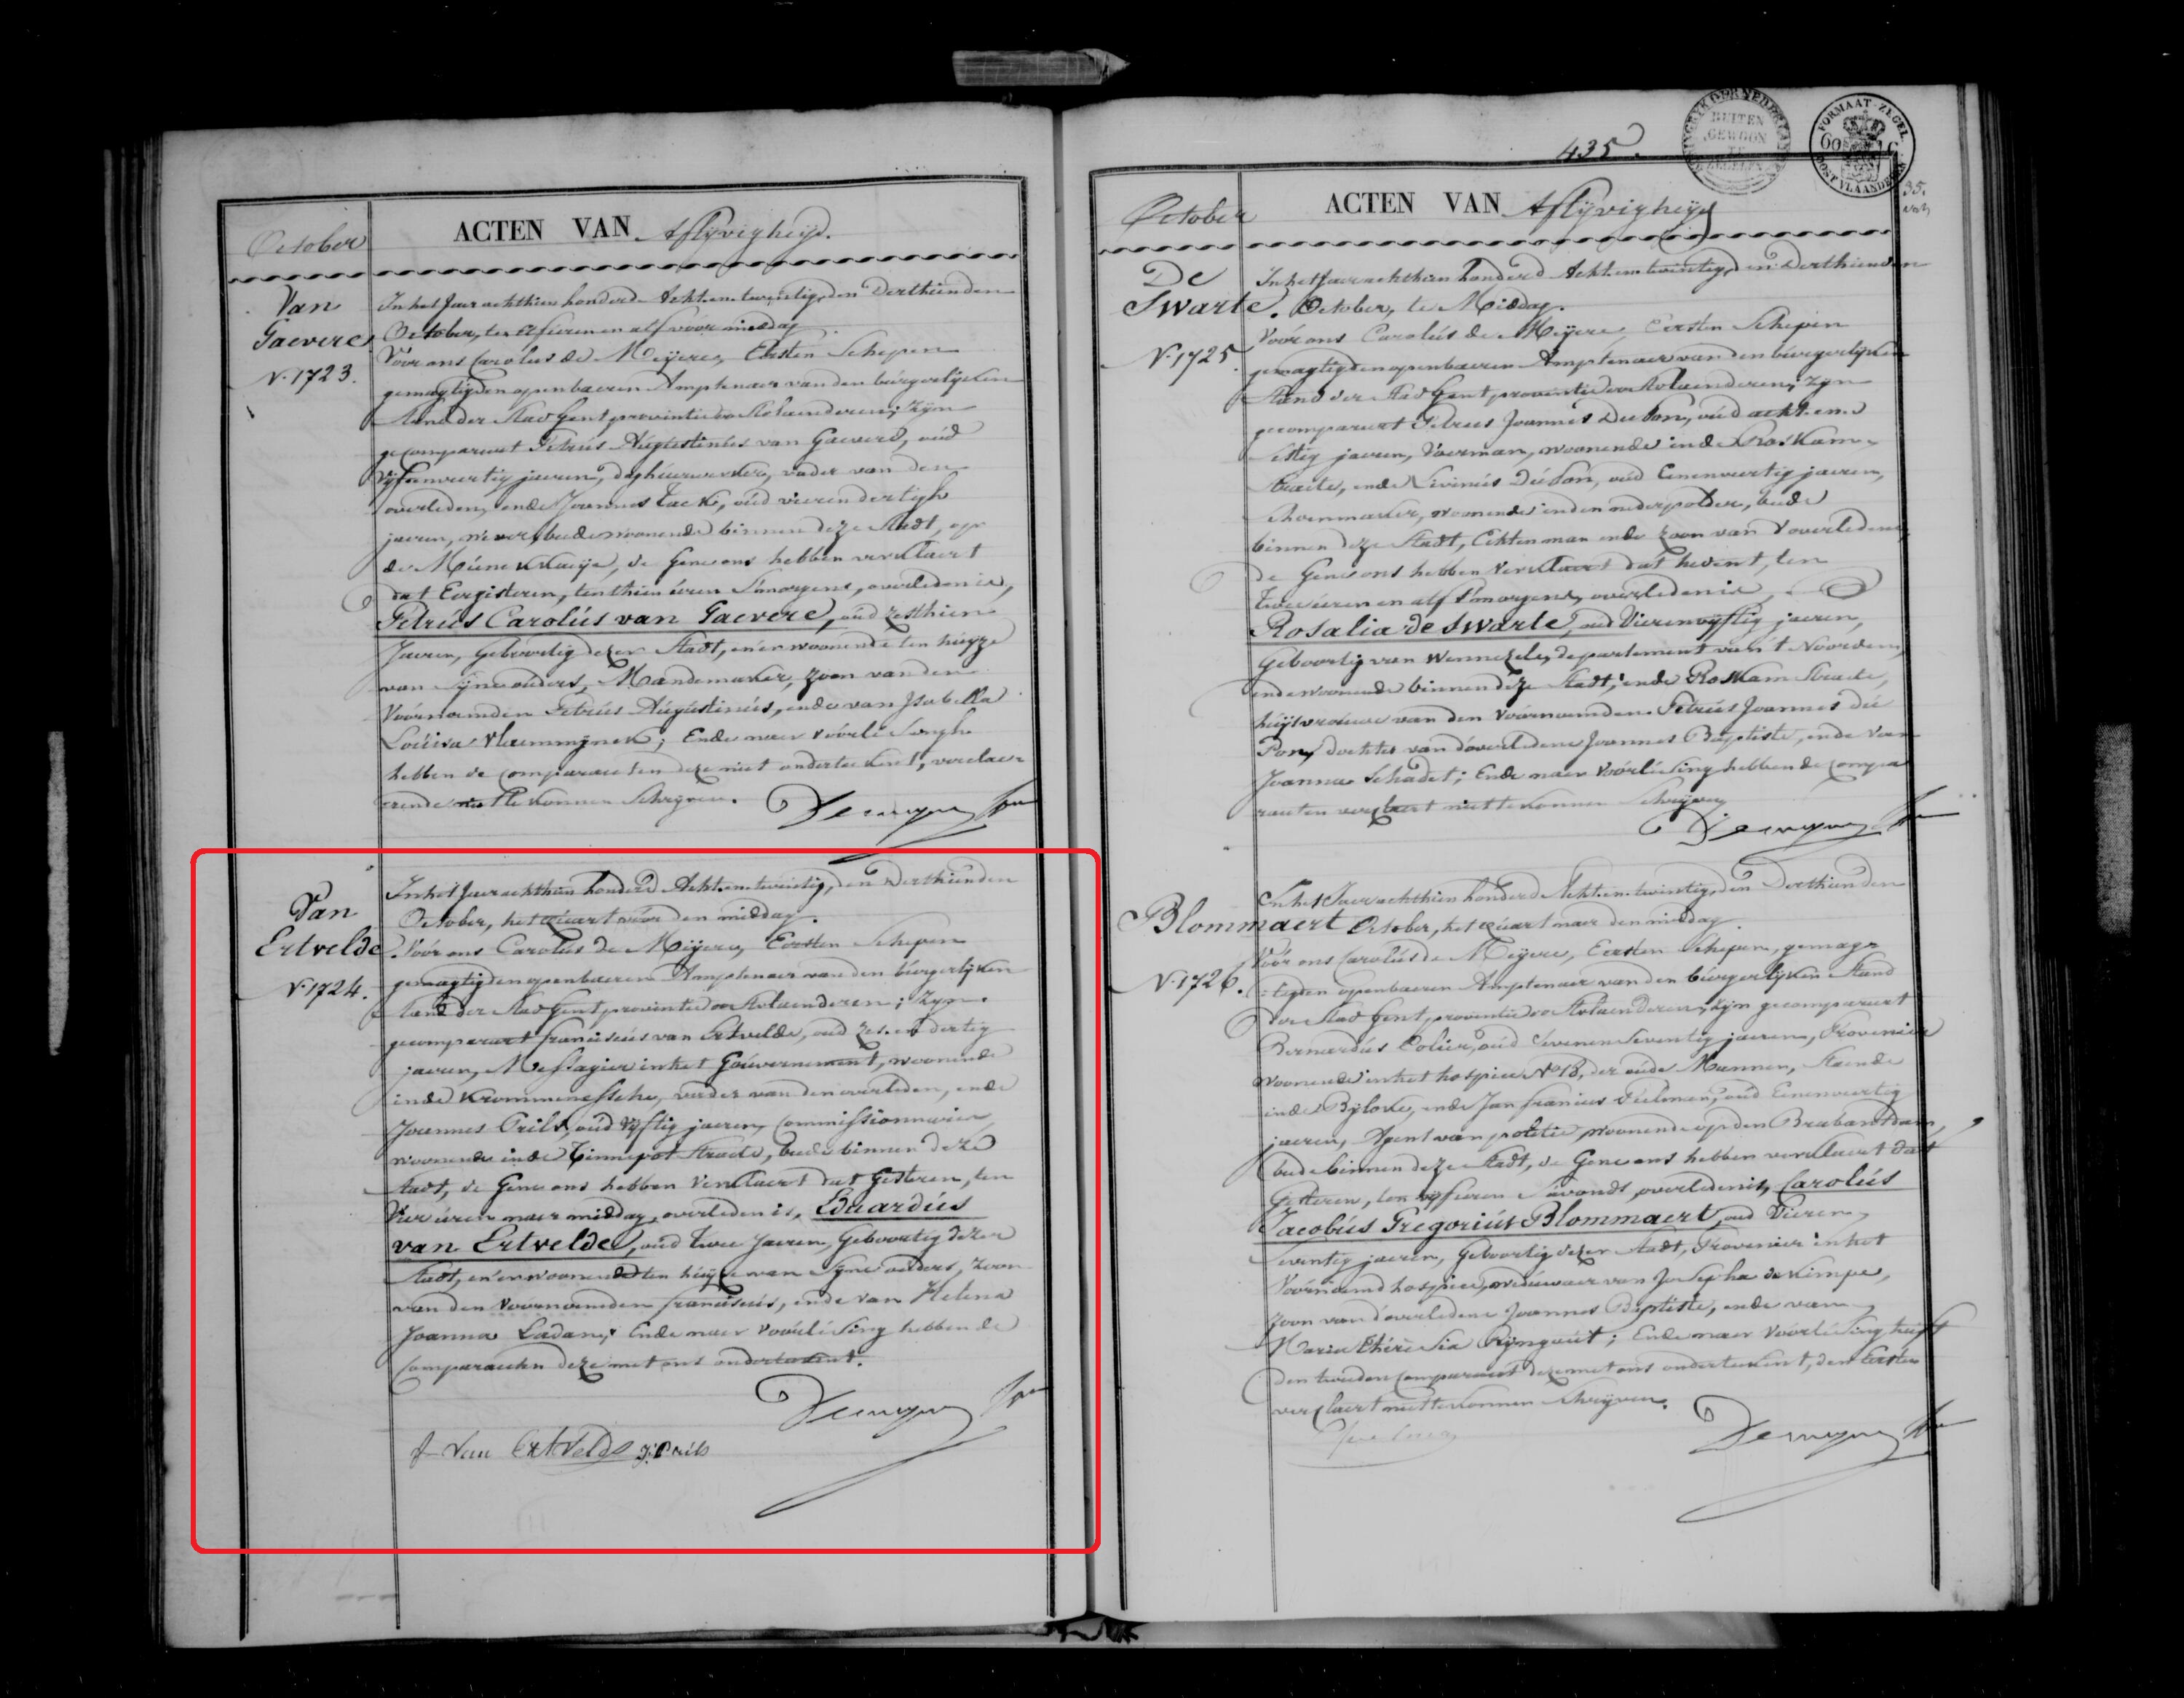 October
ACTEN VAN Aflijvigheyd.
Van
Gaevere
N. 1723.
In het Jaer achthien honderd Acht-en-twintig, den Derthienden
October, ten elf uren en alf vóór middag
Vóór ons Carolus de Meijere, Eersten Schepen
gemagtigden openbaeren Amptenaer van den bùrgerlijken
Stand der Stad Gent provintie Oost Vlaenderen; Zijn
gecompareert Petrùs Aùgùstinùs van Gaevere, oùd
vijfenveertig jaeren, daghùerwerker, vader van den
overleden, ende Joannes Tack, oùd vierendertigh
jaeren, wever, beede woonende binnen deze Stadt, op
de Meùnekkaeije, de Gene ons hebben verklaert
dat Eergisteren, ten thien ùren S'morgens, overleden is,
Petrùs Carolùs van Gaevere, oùd zesthien
Jaeren, Geboortig dezer Stadt, en er woonende ten hùyze
van Sijne oùders, Mandemaker, zoon van den
Vóórnoemden Petrùs Aùgùstinùs, ende van Isabella
Loùisa Vlaemminck; Ende naer vóórlésingh
hebben de comparanten deze niet onderteekent, verclae-
rende niet te konnen Schrijven.
Demeyere
Van
Ertvelde
N. 1724.
In het Jaer achthien honderd Acht-en-twintig, den Derthienden
October, het qùart vóór den middag.
Vóór ons Carolùs de Meijere, Eersten Schepen
gemagtigden openbaeren Amptenaer van den bùrgerlijken
Stand der Stad Gent, provintie Oost Vlaenderen; Zijn
gecompareert Franciscùs van Ertvelde, oùd zes-en dertig
jaeren, Messagier in het Goùvernement, woonende
in de Krommenessche, vader van den overleden, ende
Joannes Crils, oùd vijftig jaeren, commissionnair
woonende in de Tinnepot Straete, beede binnen deze
Stadt, de Gene ons hebben Verklaert dat Gisteren, ten
Vier ùren naer middag, overleden is, Edùardùs
van Ertvelde, oùd twee Jaeren, Geboortig dezer
Stadt, en er woonende ten hùyze van Sijne oùders, Zoon
van den Vóórnoemden Franciscùs, ende van Helena
Joanna Ladan; Ende naer vóórlésing hebben de
Comparanten deze met ons onderteekent.
Demeyere
F Van Ertvelde J: Crils
435.
October
ACTEN VAN Aflijvigheyd
FORMAAT-ZEGEL
60
OOST VLAANDEREN
BUITEN
GEWOON
De
Swarte.
N. 1725.
In het Jaer achthien honderd Acht-en-twintig, den Derthienden
October, te Middag.
Vóór ons Carolùs de Meijere, Eersten Schepen
gemagtigden openbaeren Amptenaer van den bùrgerlijken
Stand der Stad Gent, provintie Oost Vlaenderen; Zijn
gecompareert Petrus Joannes Dù Pon, oùd acht-en-
Sestig jaeren, Voerman, woonende in de Roskam-
Straete, ende Livinùs Dù Pon, oùd Eenenveertig jaeren,
Schoenmaker, woonende in den nederpolder, beede
binnen deze Stadt, Echten man ende Zoon van d'overledene
de Gene ons hebben Verklaert dat hedent, ten
twee ùren en alf S'morgens, overleden is,
Rosalia de Swarte, oùd Vierenvijftig jaeren,
Geboortig van Wennezele, departement van 't Noorden,
ende woonende binnen deze Stadt, in de Roskam Straete,
hùijsvroùwe van den Vóórnoemden Petrùs Joannes dù
Pon, dochter van d'overledene Joannes Baptiste, ende van
Joanna Schadet; Ende naer Vóórlésing hebben de compa
ranten verclaert niet te konnen Schrijven
Demeyere
Blommaert
N. 1726.
In het Jaer achthien honderd Acht-en-twintig, den Derthienden
October, het qùart naer den middag.
Vóór ons Carolùs de Meijere, Eersten Schepen, gemag-
tigden openbaeren Amptenaer van den bùrgerlijken Stand
der Stad Gent, provintie Oost Vlaenderen, zijn gecompareert
Bernardùs Colier, oùd Sevenen Seventig jaeren, Provenier
woonende in het hospice N° 18, der oùde Mannen, Staende
in de Bijloke, ende Jan Franciscus Peleman, oùd Eenenveertig
jaeren, Agent van politie, woonende op den Brabantdam,
beede binnen deze Stadt, de Gene ons hebben verklaert dat
Gisteren, ten vijf ùren S'avonds, overleden is, Carolùs
Jacobùs Gregoriùs Blommaert, oùd Vieren-
Seventig jaeren, Geboortig dezer Stadt, Provenier in het
Vóórnoemd hospice, wedùwaer van Josepha de Kimpe,
Zoon van d'overledene Joannes Baptiste, ende van
Maria Thérèsia Rijngaùt; Ende naer Vóórlésing heeft
den tweeden comparant deze met ons onderteekent, den Eersten
verclaert niet te konnen Schrijven.
Demeyere